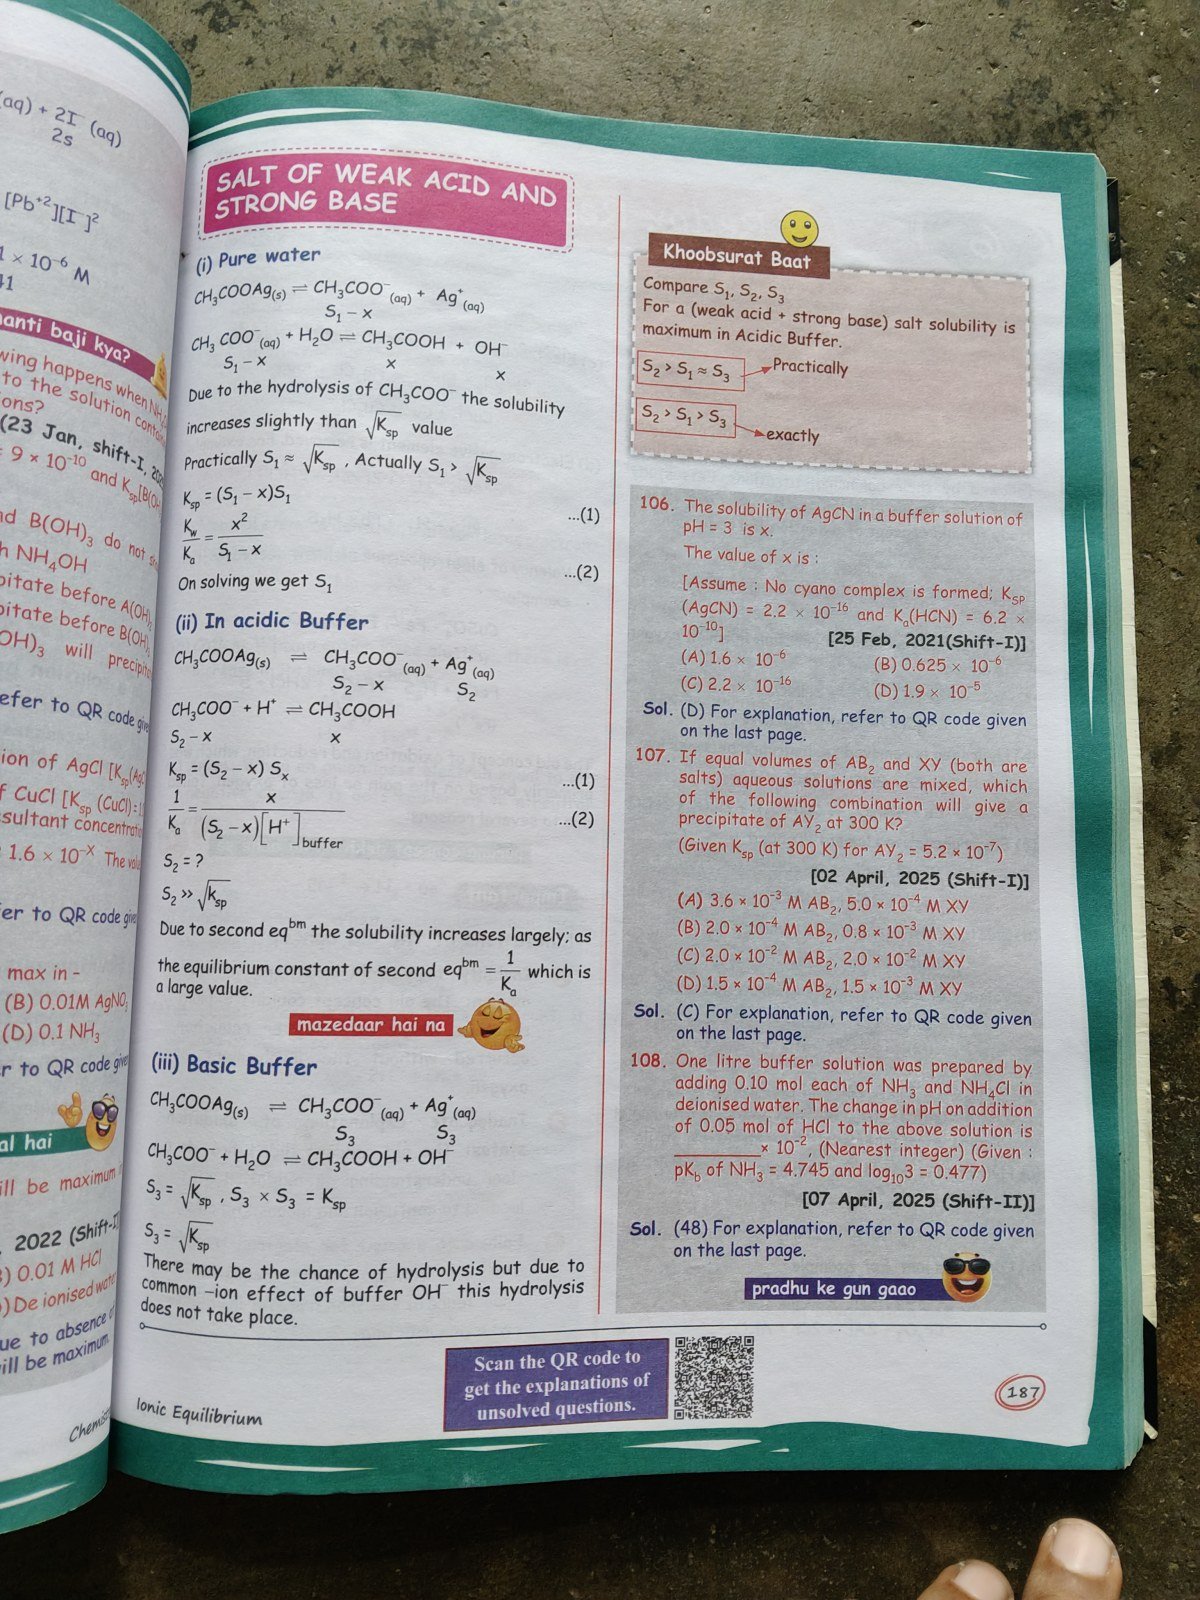 (aq) + 2I⁻ (aq)
2s
[Pb⁺²][I⁻]²
1 × 10⁻⁶ M
41
anti baji kya?
wing happens when
to the solution
ions?
(23 Jan, shift-I,
= 9 × 10⁻¹⁰ and Ksp[B(OH)
nd B(OH)₃ do not
h NH₄OH
pitate before A(OH)
pitate before B(OH)₃
OH)₃ will
efer to QR code
ion of AgCl [Ksp(AgC
f CuCl [Ksp (CuCl) =
sultant
1.6 × 10⁻ˣ The
fer to QR code
max in -
(B) 0.01M AgNO₃
(D) 0.1 NH₃
r to QR code
al hai
ill be maximum
, 2022 (Shift-I
) 0.01 M HCl
) De ionised
ue to absence
ill be maximum.
SALT OF WEAK ACID AND
STRONG BASE
(i) Pure water
CH₃COOAg(s) ⇌ CH₃COO⁻(aq) + Ag⁺(aq)
S₁ – x
CH₃ COO⁻(aq) + H₂O ⇌ CH₃COOH + OH⁻
S₁ – x x x
Due to the hydrolysis of CH₃COO⁻ the solubility
increases slightly than √Ksp value
Practically S₁ ≈ √Ksp , Actually S₁ > √Ksp
Ksp = (S₁ – x)S₁ ...(1)
Kw/Ka = x²/(S₁ – x) ...(2)
On solving we get S₁
(ii) In acidic Buffer
CH₃COOAg(s) ⇌ CH₃COO⁻(aq) + Ag⁺(aq)
S₂ – x S₂
CH₃COO⁻ + H⁺ ⇌ CH₃COOH
S₂ – x x
Ksp = (S₂ – x) Sₓ ...(1)
1/Ka = x/((S₂ – x)[H⁺]buffer) ...(2)
S₂ = ?
S₂ >> √ksp
Due to second eqᵇᵐ the solubility increases largely; as
the equilibrium constant of second eqᵇᵐ = 1/Ka which is
a large value.
mazedaar hai na
(iii) Basic Buffer
CH₃COOAg(s) ⇌ CH₃COO⁻(aq) + Ag⁺(aq)
S₃ S₃
CH₃COO⁻ + H₂O ⇌ CH₃COOH + OH⁻
S₃ = √Ksp , S₃ × S₃ = Ksp
S₃ = √Ksp
There may be the chance of hydrolysis but due to
common –ion effect of buffer OH⁻ this hydrolysis
does not take place.
Khoobsurat Baat
Compare S₁, S₂, S₃
For a (weak acid + strong base) salt solubility is
maximum in Acidic Buffer.
S₂ > S₁ ≈ S₃ Practically
S₂ > S₁ > S₃ exactly
106. The solubility of AgCN in a buffer solution of
pH = 3 is x.
The value of x is :
[Assume : No cyano complex is formed; KSP
(AgCN) = 2.2 × 10⁻¹⁶ and Ka(HCN) = 6.2 ×
10⁻¹⁰] [25 Feb, 2021(Shift-I)]
(A) 1.6 × 10⁻⁶ (B) 0.625 × 10⁻⁶
(C) 2.2 × 10⁻¹⁶ (D) 1.9 × 10⁻⁵
Sol. (D) For explanation, refer to QR code given
on the last page.
107. If equal volumes of AB₂ and XY (both are
salts) aqueous solutions are mixed, which
of the following combination will give a
precipitate of AY₂ at 300 K?
(Given Ksp (at 300 K) for AY₂ = 5.2 × 10⁻⁷)
[02 April, 2025 (Shift-I)]
(A) 3.6 × 10⁻³ M AB₂, 5.0 × 10⁻⁴ M XY
(B) 2.0 × 10⁻⁴ M AB₂, 0.8 × 10⁻³ M XY
(C) 2.0 × 10⁻² M AB₂, 2.0 × 10⁻² M XY
(D) 1.5 × 10⁻⁴ M AB₂, 1.5 × 10⁻³ M XY
Sol. (C) For explanation, refer to QR code given
on the last page.
108. One litre buffer solution was prepared by
adding 0.10 mol each of NH₃ and NH₄Cl in
deionised water. The change in pH on addition
of 0.05 mol of HCl to the above solution is
_________× 10⁻², (Nearest integer) (Given :
pKb of NH₃ = 4.745 and log₁₀3 = 0.477)
[07 April, 2025 (Shift-II)]
Sol. (48) For explanation, refer to QR code given
on the last page.
pradhu ke gun gaao
Scan the QR code to
get the explanations of
unsolved questions.
187
Ionic Equilibrium